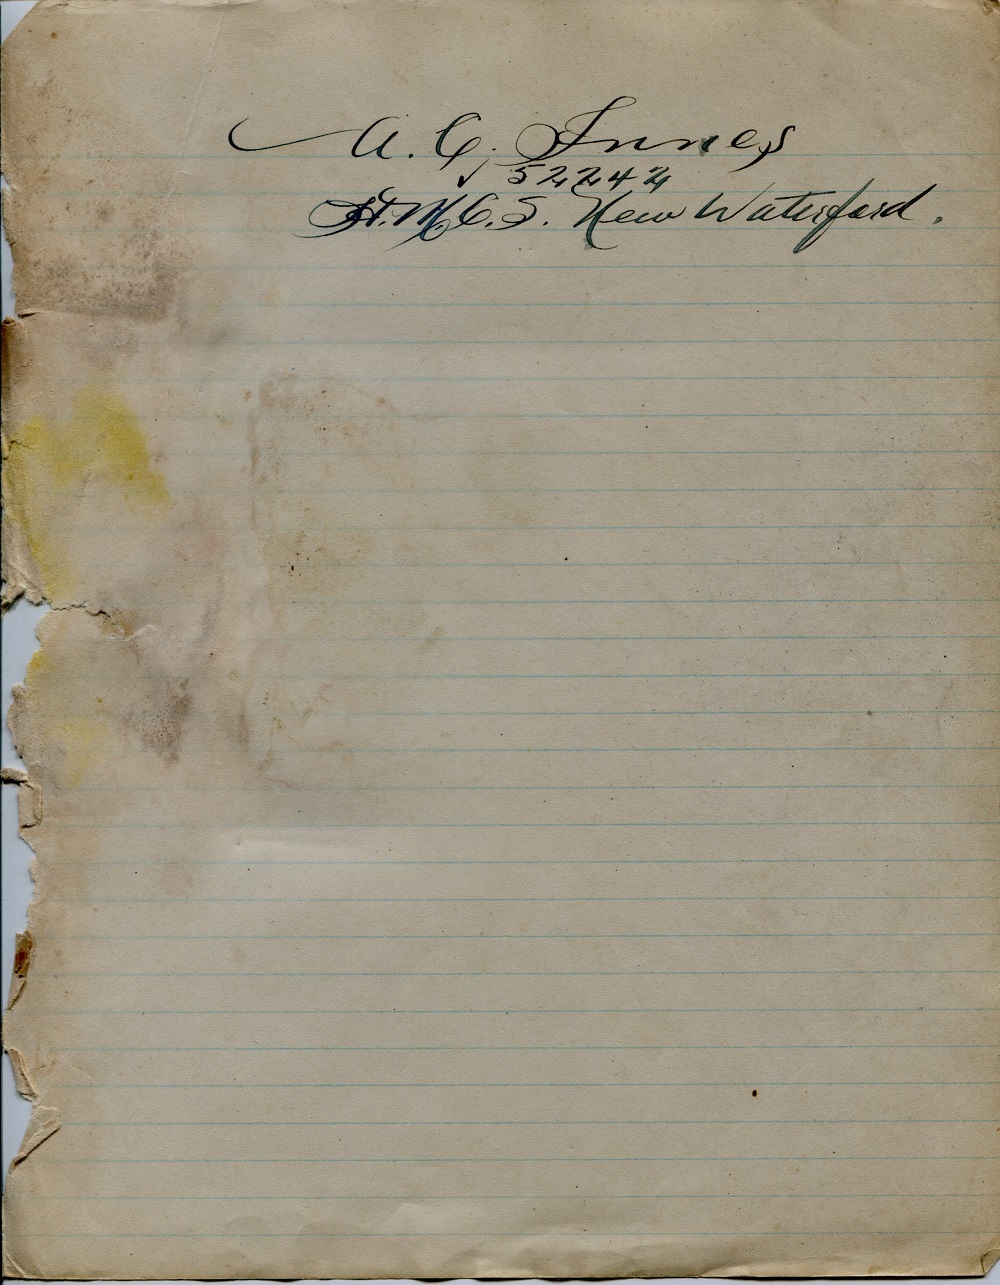 A. G. Innes
V 52242
H.M.C.S. New Waterford.